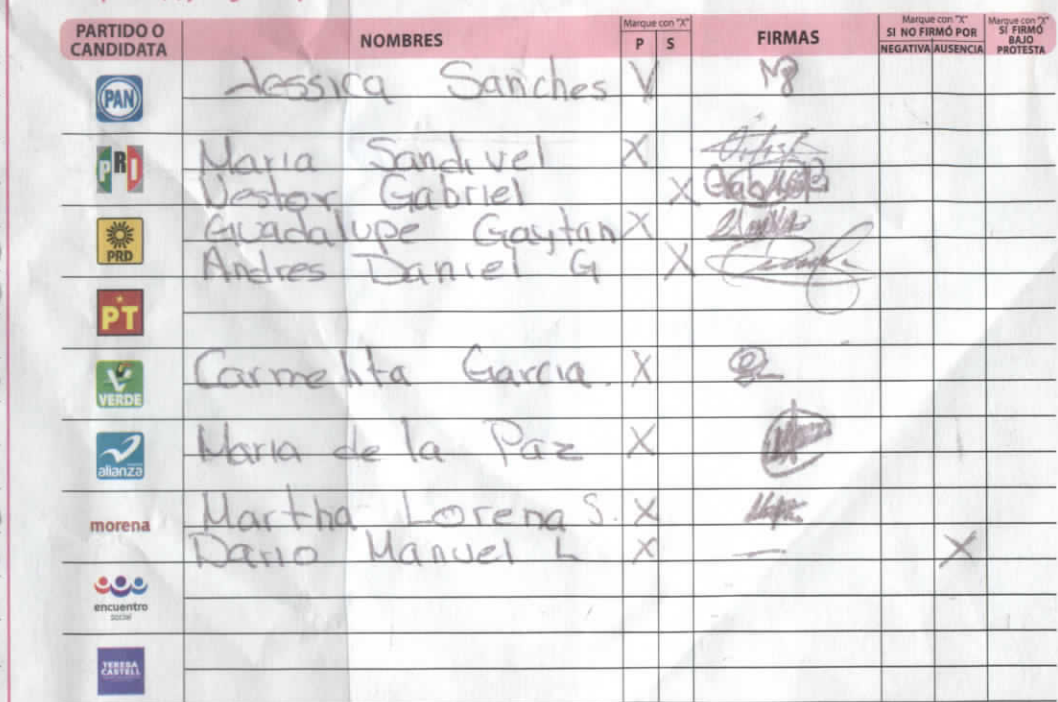 PARTIDO O CANDIDATA
NOMBRES
Marque con "X"
P S
FIRMAS
Marque con "X"
SI NO FIRMÓ POR
NEGATIVA AUSENCIA
Marque con "X"
SI FIRMÓ BAJO PROTESTA
PAN Jessica Sanches X
PRI Maria Sandivel X
Nestor Gabriel X
PRD Guadalupe Gaytan X
Andres Daniel G X
PT
VERDE Carmelita Garcia. X
alianza Maria de la Paz X
morena Martha Lorena S. X
Dario Manuel L X — X
encuentro social
TERESA CASTELL